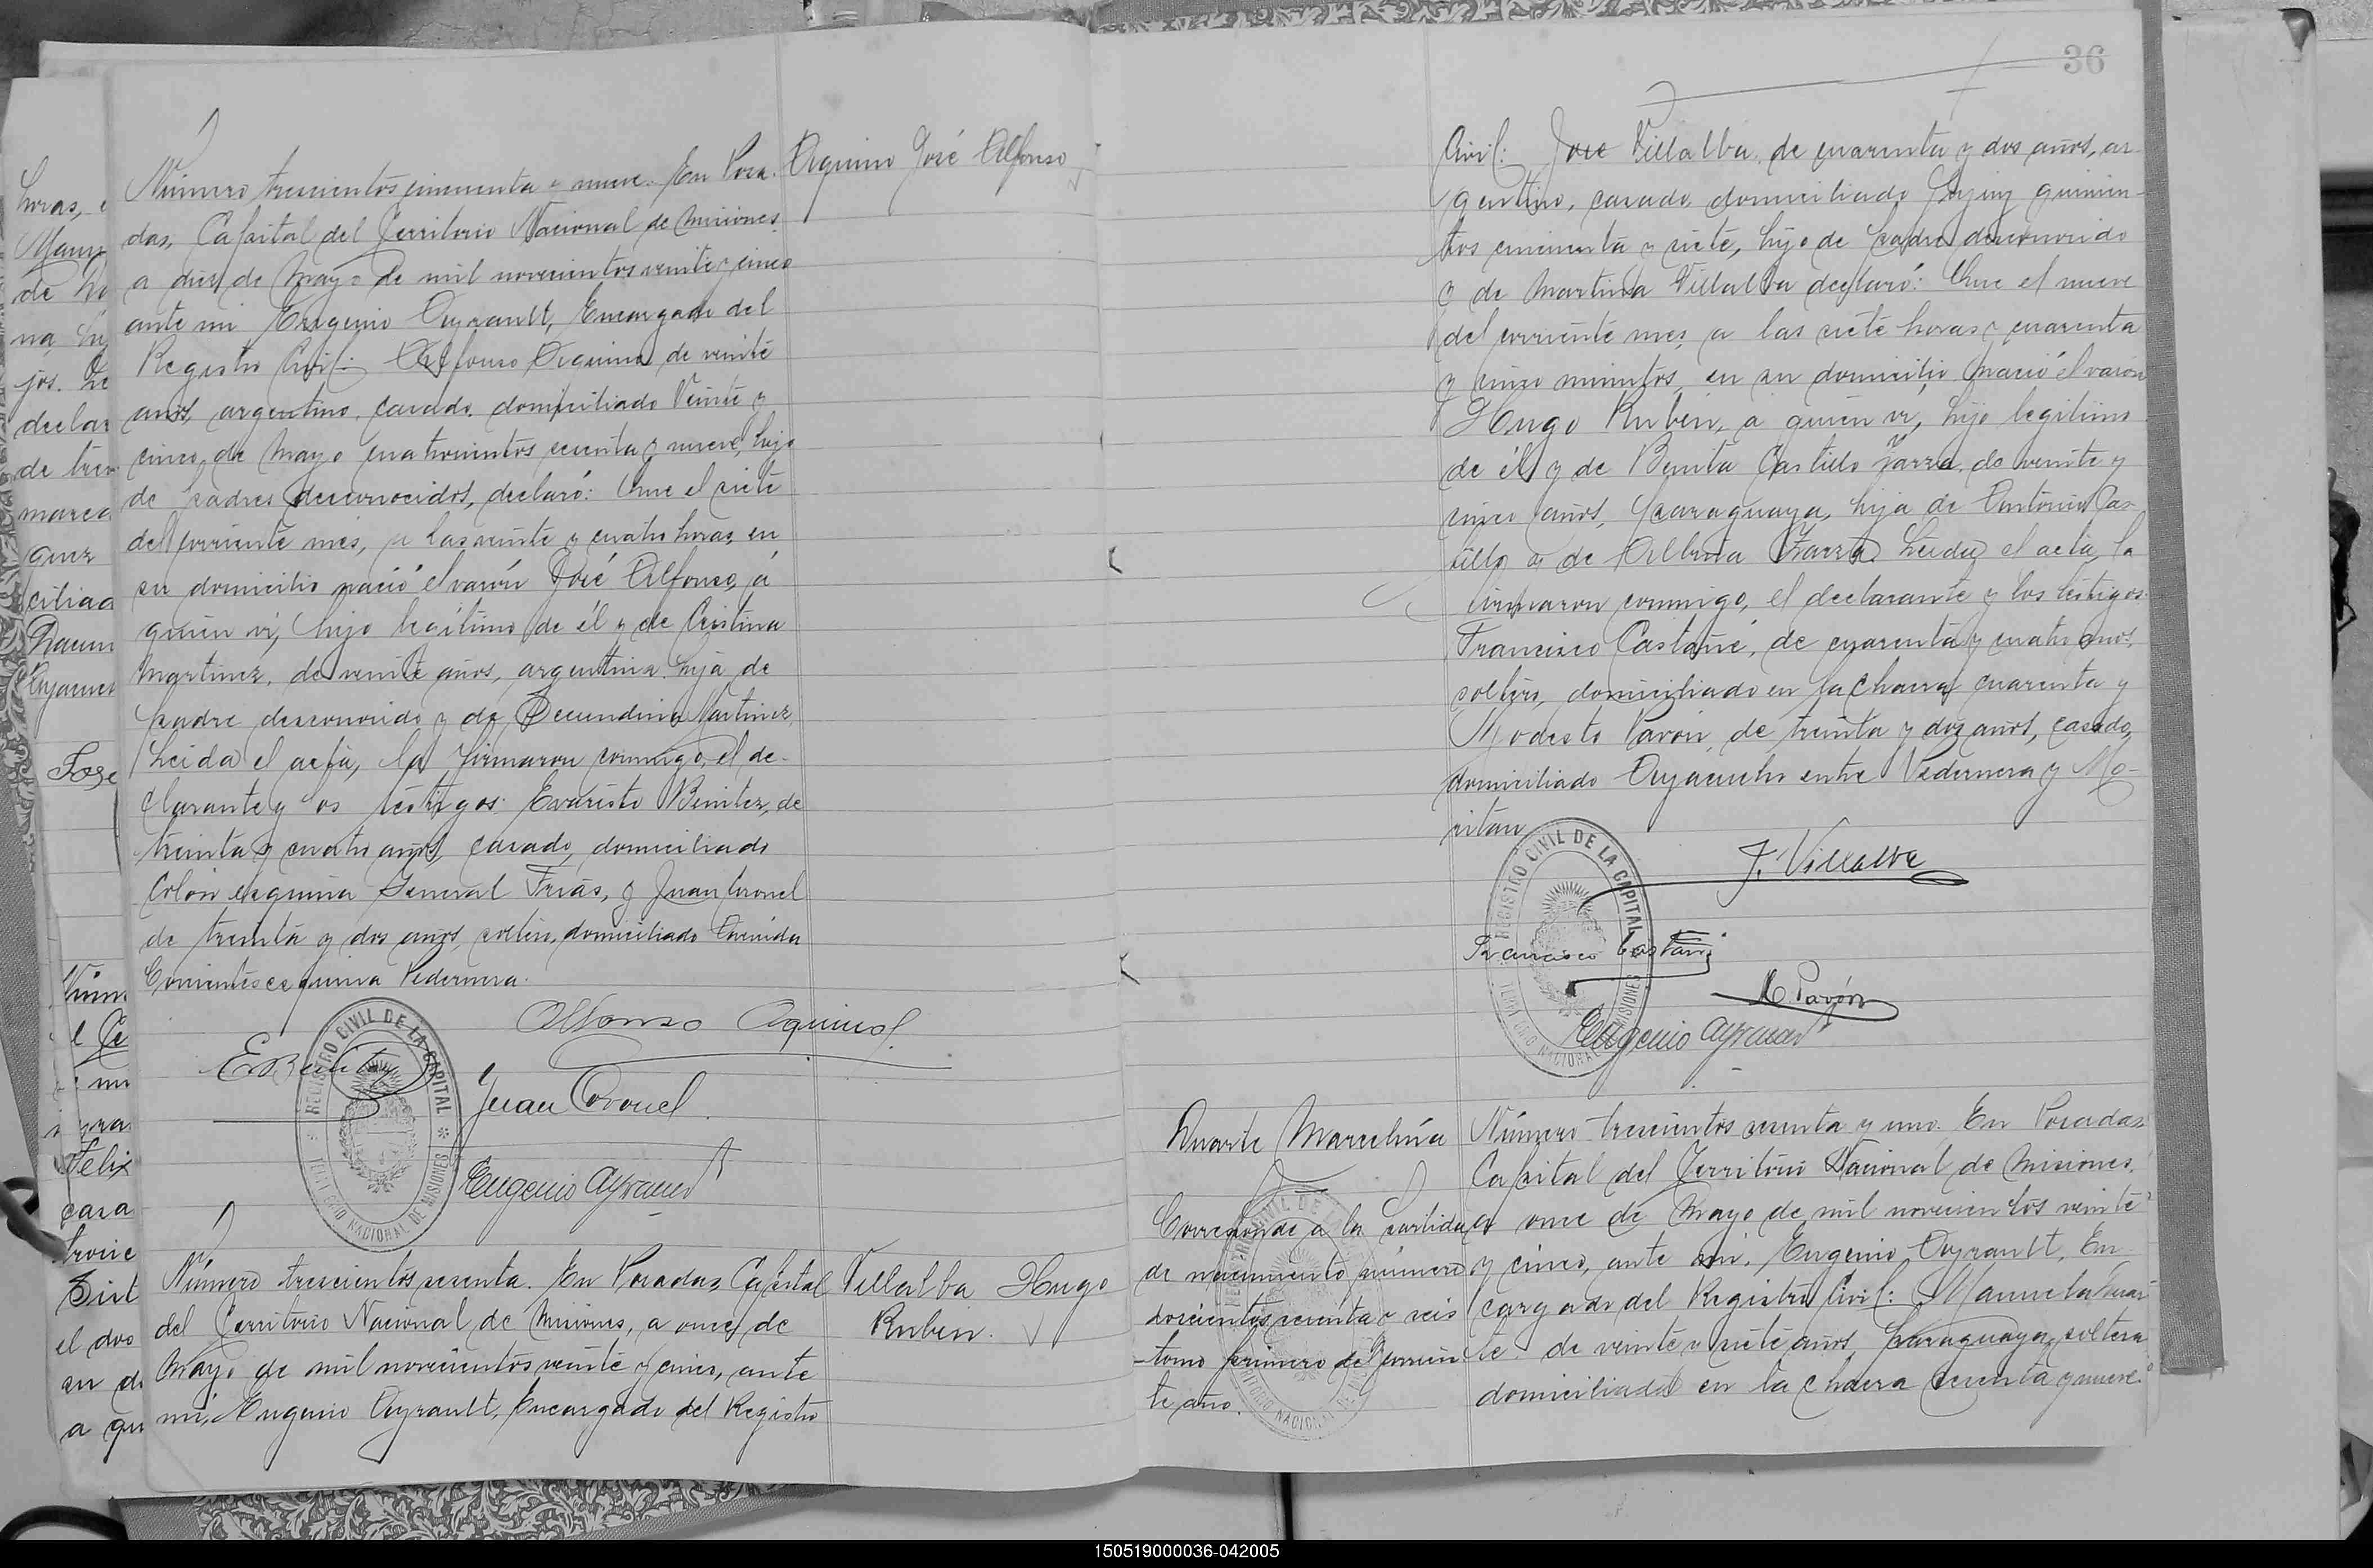 Aquino José Alfonso
Número trescientos cincuenta y nueve. En Posa-
das, Capital del Territorio Nacional de Misiones,
a diez de Mayo de mil novecientos veinte y cinco
ante mi Eugenio Ayrault, Encargado del
Registro Civil: Alfonso Aquino de veinte
años, argentino, casado, domiciliado Veinte y
cinco de Mayo cuatrocientos sesenta y nueve, hijo
de padres desconocidos, declaró: Que el siete
del corriente mes, a las veinte y cuatro horas, en
su domicilio nació el varón José Alfonso, á
quien ví, hijo legítimo de él y de Cristina
Martinez, de veinte años, argentina, hija de
padre desconocido y de Secundina Martinez.
Leida el acta, la firmaron conmigo, el de-
clarante y os testigos: Evaristo Benitez, de
treinta y cuatro años, casado, domiciliado
Colón esquina General Frias, y Juan Coronel
de treinta y dos años, soltero, domiciliado Avenida
Corrientes esquina Pedernera.
Alfonso Aquino
E Benitez
Juan Coronel
Eugenio Ayrault
REGISTRO CIVIL DE LA CAPITAL
TERRITORIO NACIONAL DE MISIONES
Villalba Hugo
Rubén.
Número trescientos sesenta. En Posadas, Capital
del Territorio Nacional de Misiones, a once de
Mayo de mil novecientos veinte y cinco, ante
mi, Eugenio Ayrault, Encargado del Registro
36
Civil: José Villalba, de cuarenta y dos años, ar-
gentino, casado, domiciliado quinien-
tos cincuenta y siete, hijo de padre desconocido
y de Martina Villalba declaró: Que el nueve
del corriente mes, a las siete horas y cuarenta
y cinco minutos, en su domicilio nació el varón
Hugo Rubén, a quien ví, hijo legítimo
de él y de Benita Castillo Yarza, de veinte y
cinco años, paraguaya, hija de Antonio Cas-
tillo y de Albina Leida el acta, la
firmaron conmigo, el declarante y los testigos
Francisco Castañé, de cuarenta y cuatro años,
soltero, domiciliado en la Chacra cuarenta y
Modesto Pavón, de treinta y dos años, casado,
domiciliado Ayacucho entre Pedernera y Mo-
ritan
J. Villalba
Francisco Castañé
M Pavón
Eugenio Ayrault
REGISTRO CIVIL DE LA CAPITAL
TERRITORIO NACIONAL DE MISIONES
Duarte Marcelina
Corresponde a la partida
de nacimiento número
doscientos sesenta y seis
tomo primero del corrien
te año.
Número trescientos sesenta y uno. En Posadas
Capital del Territorio Nacional de Misiones,
a once de Mayo de mil novecientos veinte
y cinco, ante mi, Eugenio Ayrault, En
cargado del Registro Civil: Manuela Duar
te de veinte y siete años, paraguaya, soltera
domiciliada en la chacra sesenta y nueve
150519000036-042005